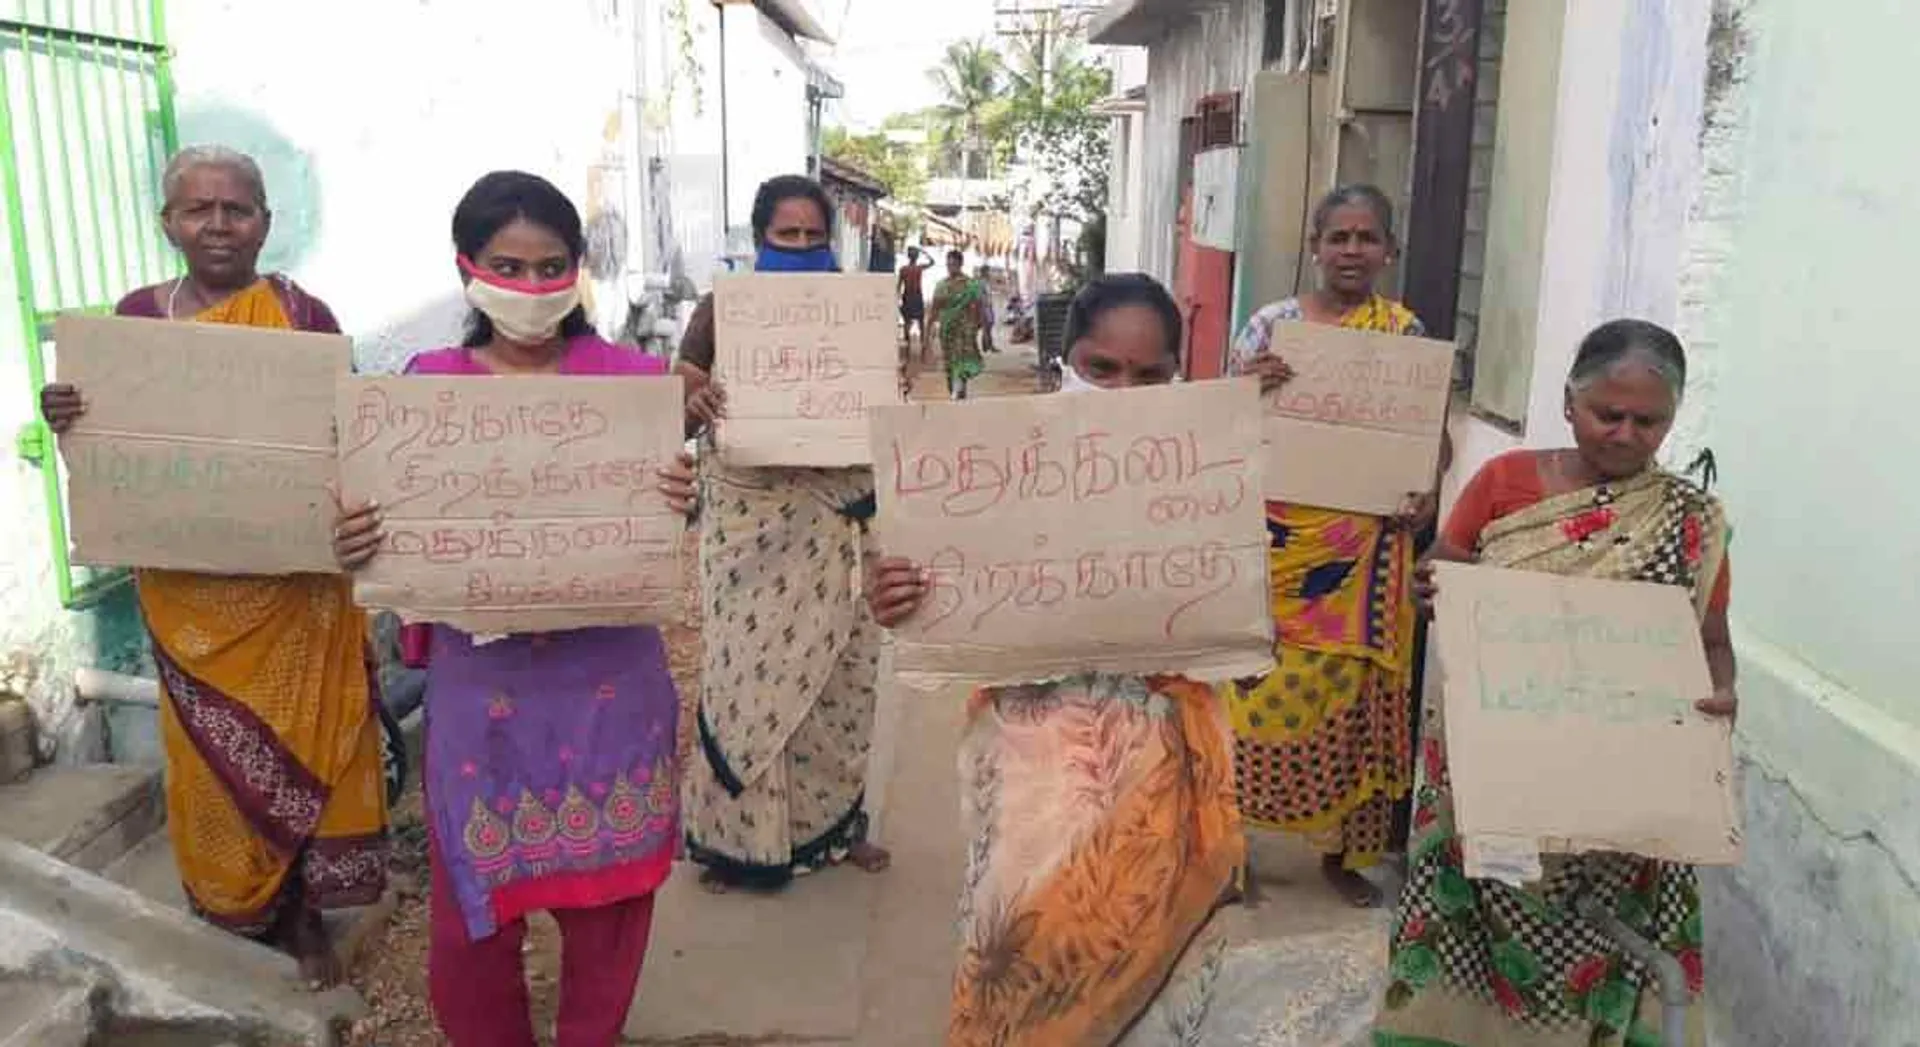 திறக்காதே
திறக்காதே
மதுக்கடை
திறக்காதே
வேண்டாம்
மதுக்
கடை
மதுக்கடை
யை
திறக்காதே
வேண்டாம்
மதுக்கடை
வேண்டாம்
3/4